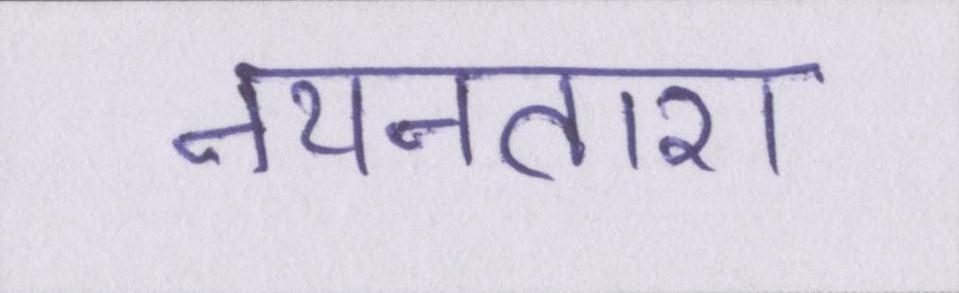 नयनतारा